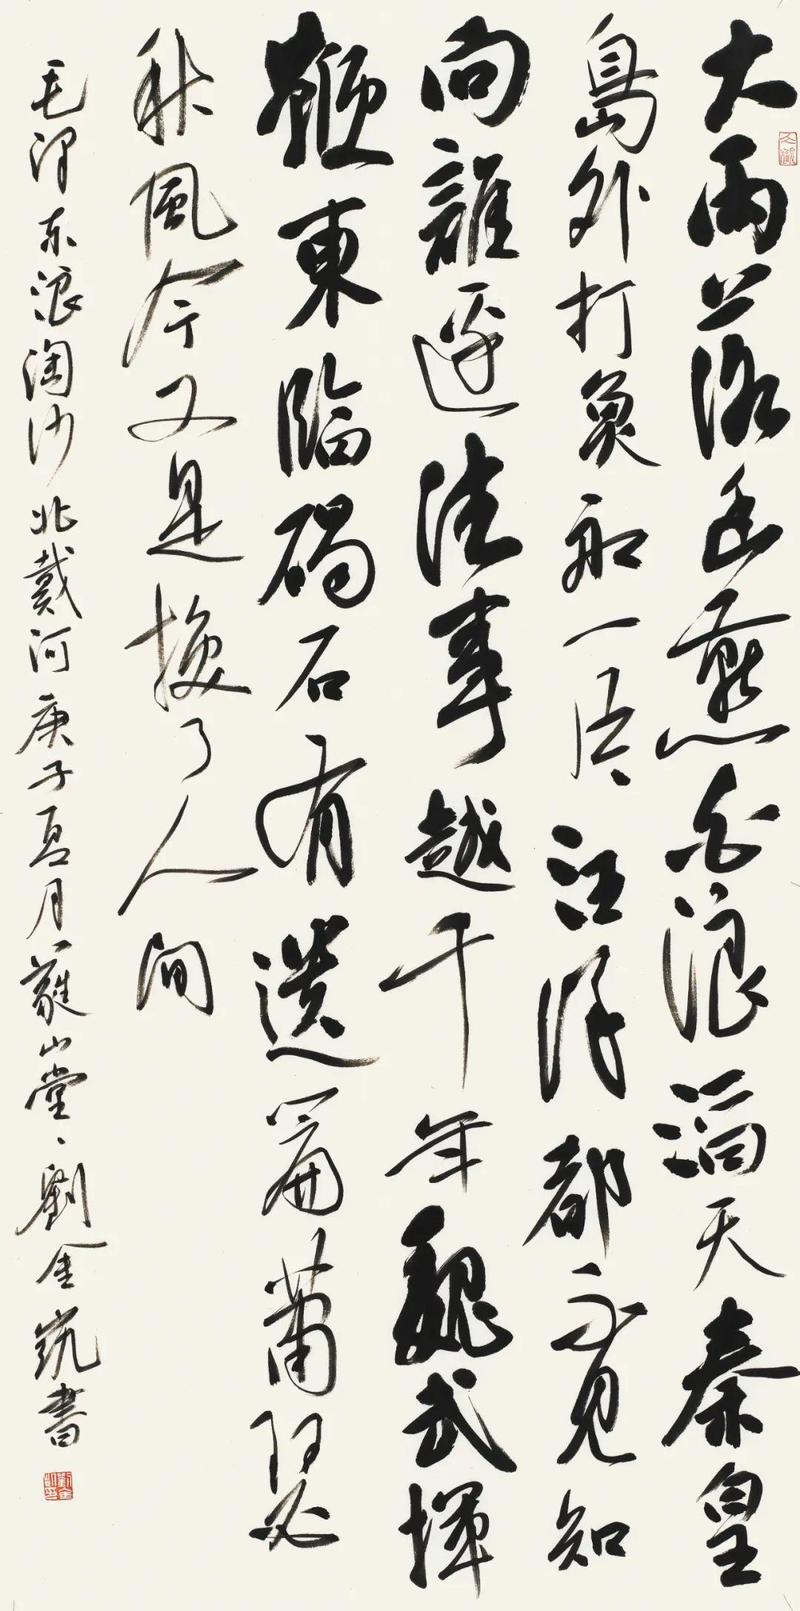 大雨落幽燕白浪滔天秦皇
島外打魚船一片汪洋都不見知
向誰邊往事越千年魏武揮
鞭東臨碣石有遺篇蕭瑟
秋風今又是換了人間
毛澤东浪淘沙北戴河庚子夏月山堂劉金凱書